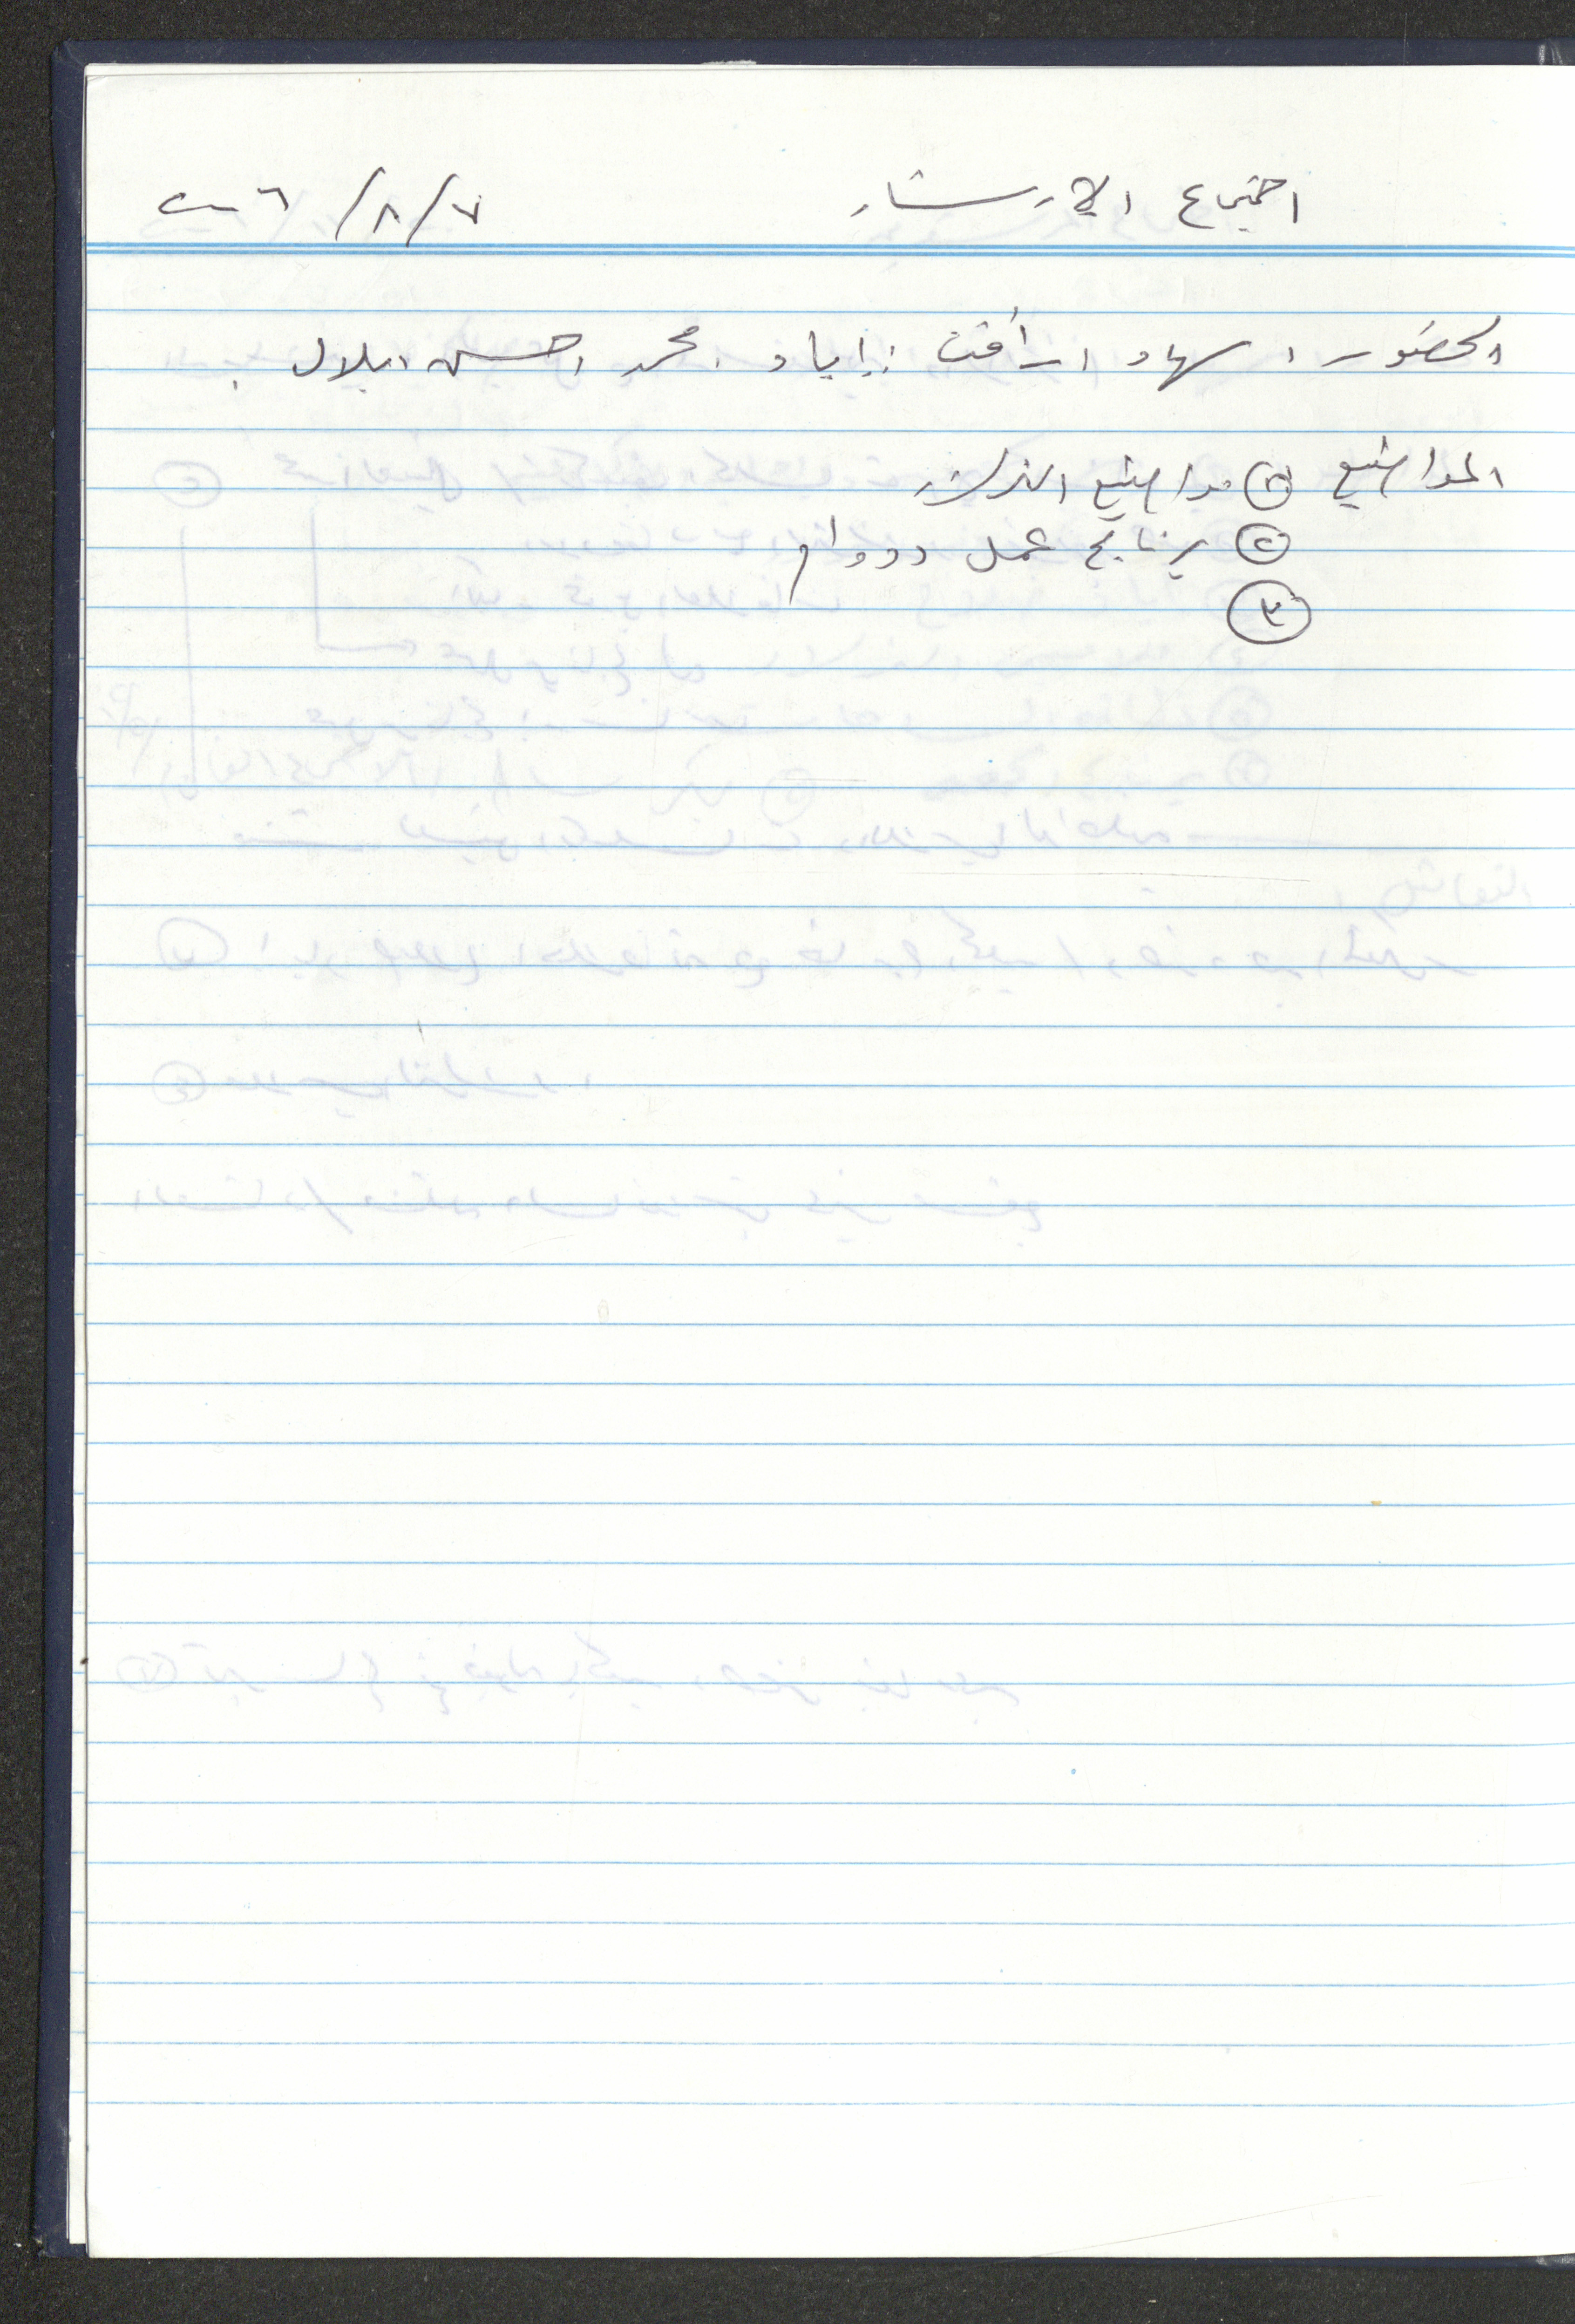 اجتماع الإرشاد ٧/٨/٢٠٠٦
الحضور / سهاد / رأفت / إياد / محمد / حسن / بلال .
المواضيع ① مواضيع النشرة
② برنامج عمل ودوام
③